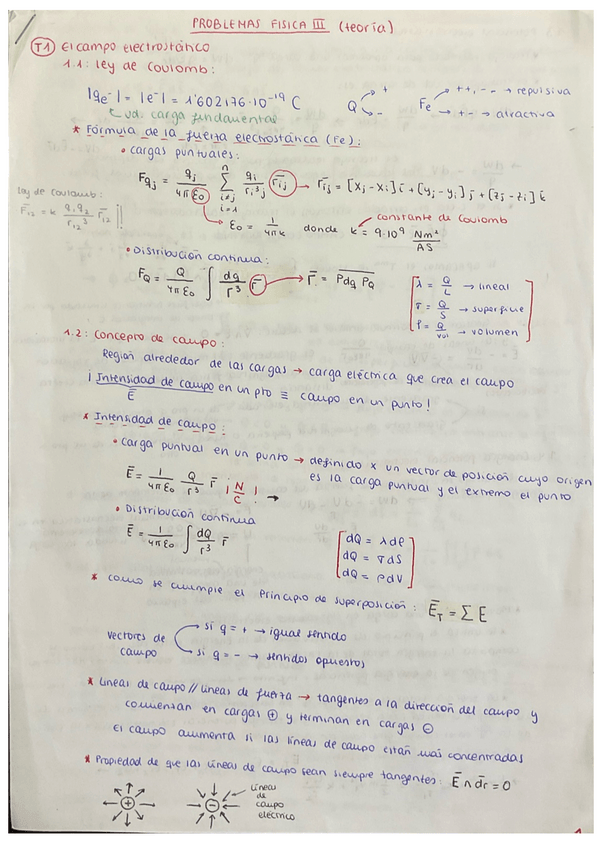 PROBLEMAS FISICA III (teoría)
T1 El campo electrostático
1.1: Ley de Coulomb:
|qe⁻| = |e⁻| = 1'602176·10⁻¹⁹ C
ud. carga fundamental
Q + -
Fe ++, -- → repulsiva
+- → atractiva
* Fórmula de la fuerza electrostática (Fe):
• cargas puntuales:
Fqj = qj / 4πε0 Σ qi / r³ij r̄ij → r̄ij = [xj - xi] ī + [yj - yi] j̄ + [zj - zi] k̄
n
i≠j
i=1
Ley de Coulomb:
F̄12 = k q1 q2 / r12³ r̄12 !!
ε0 = 1 / 4πk donde k = 9·10⁹ Nm² / AS
constante de Coulomb
• Distribución continua:
FQ = Q / 4πε0 ∫ dq / r³ r̄ → r̄ = Pdq PQ
λ = Q / L → lineal
σ = Q / S → superficie
ρ = Q / vol → volumen
1.2: Concepto de campo:
Región alrededor de las cargas → carga eléctrica que crea el campo
¡ Intensidad de campo en un pto ≡ campo en un punto!
Ē
* Intensidad de campo:
• Carga puntual en un punto → definido x un vector de posición cuyo origen
es la carga puntual y el extremo el punto
Ē = 1 / 4πε0 Q / r³ r̄ ¡ N / C ! →
• Distribución continua
Ē = 1 / 4πε0 ∫ dQ / r³ r̄
dQ = λdl
dQ = σdS
dQ = ρdV
* como se cumple el Principio de superposición: ĒT = Σ E
Vectores de campo
si q = + → igual sentido
si q = - → sentidos opuestos
* Líneas de campo // líneas de fuerza → tangentes a la dirección del campo y
comienzan en cargas ⊕ y terminan en cargas ⊖
El campo aumenta si las líneas de campo están más concentradas
* Propiedad de que las líneas de campo sean siempre tangentes: Ē ∧ d̄r = 0
+
-
Líneas
de
campo
eléctrico
1